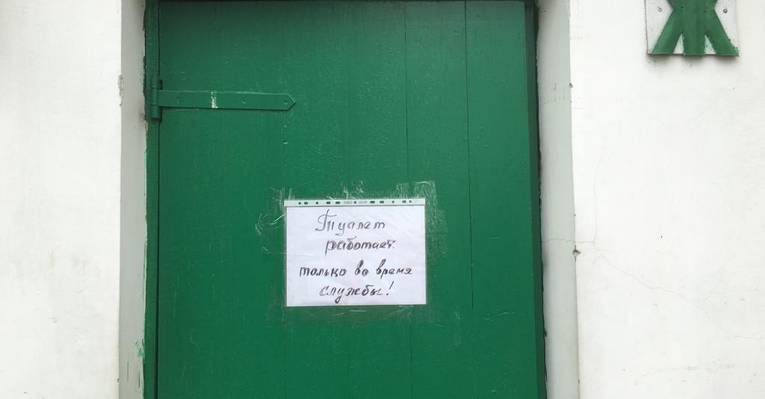 Ж
Туалет
работает
только во время
службы!